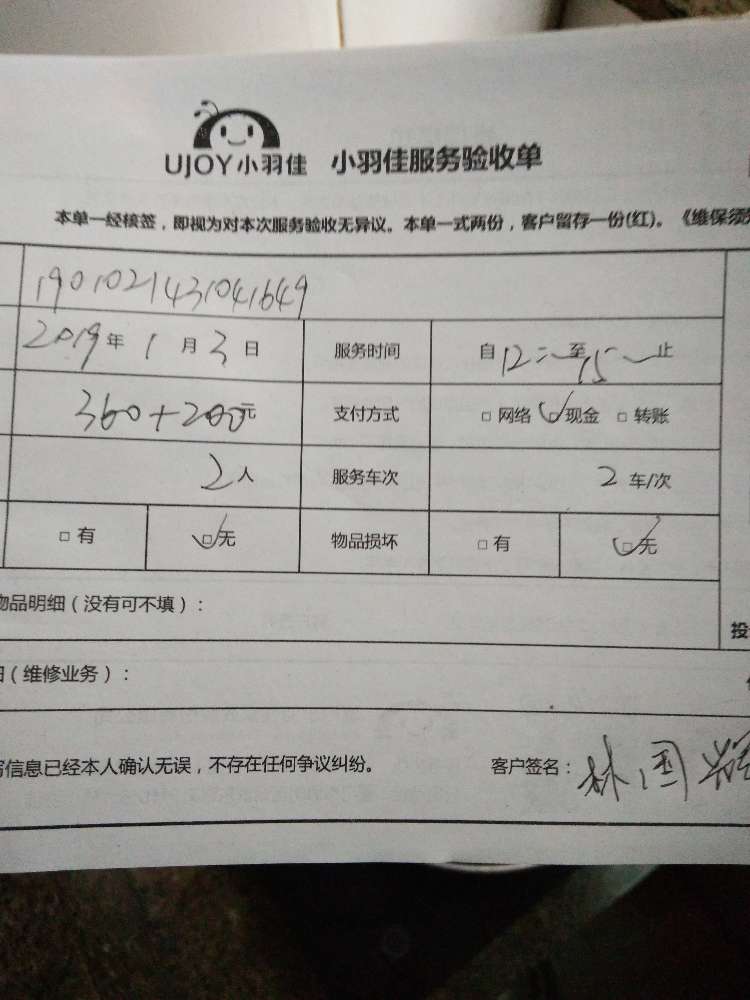 UJOY小羽佳 小羽佳服务验收单
本单一经核签，即视为对本次服务验收无异议。本单一式两份，客户留存一份(红)。《维保须
1901021431041649
2019年1月3日 服务时间 自12：至15 止
360+200元 支付方式 □网络 ☑现金 □转账
2人 服务车次 2车/次
□有 ☑无 物品损坏 □有 ☑无
物品明细（没有可不填）：
投
（维修业务）：
信息已经本人确认无误，不存在任何争议纠纷。 客户签名：林国